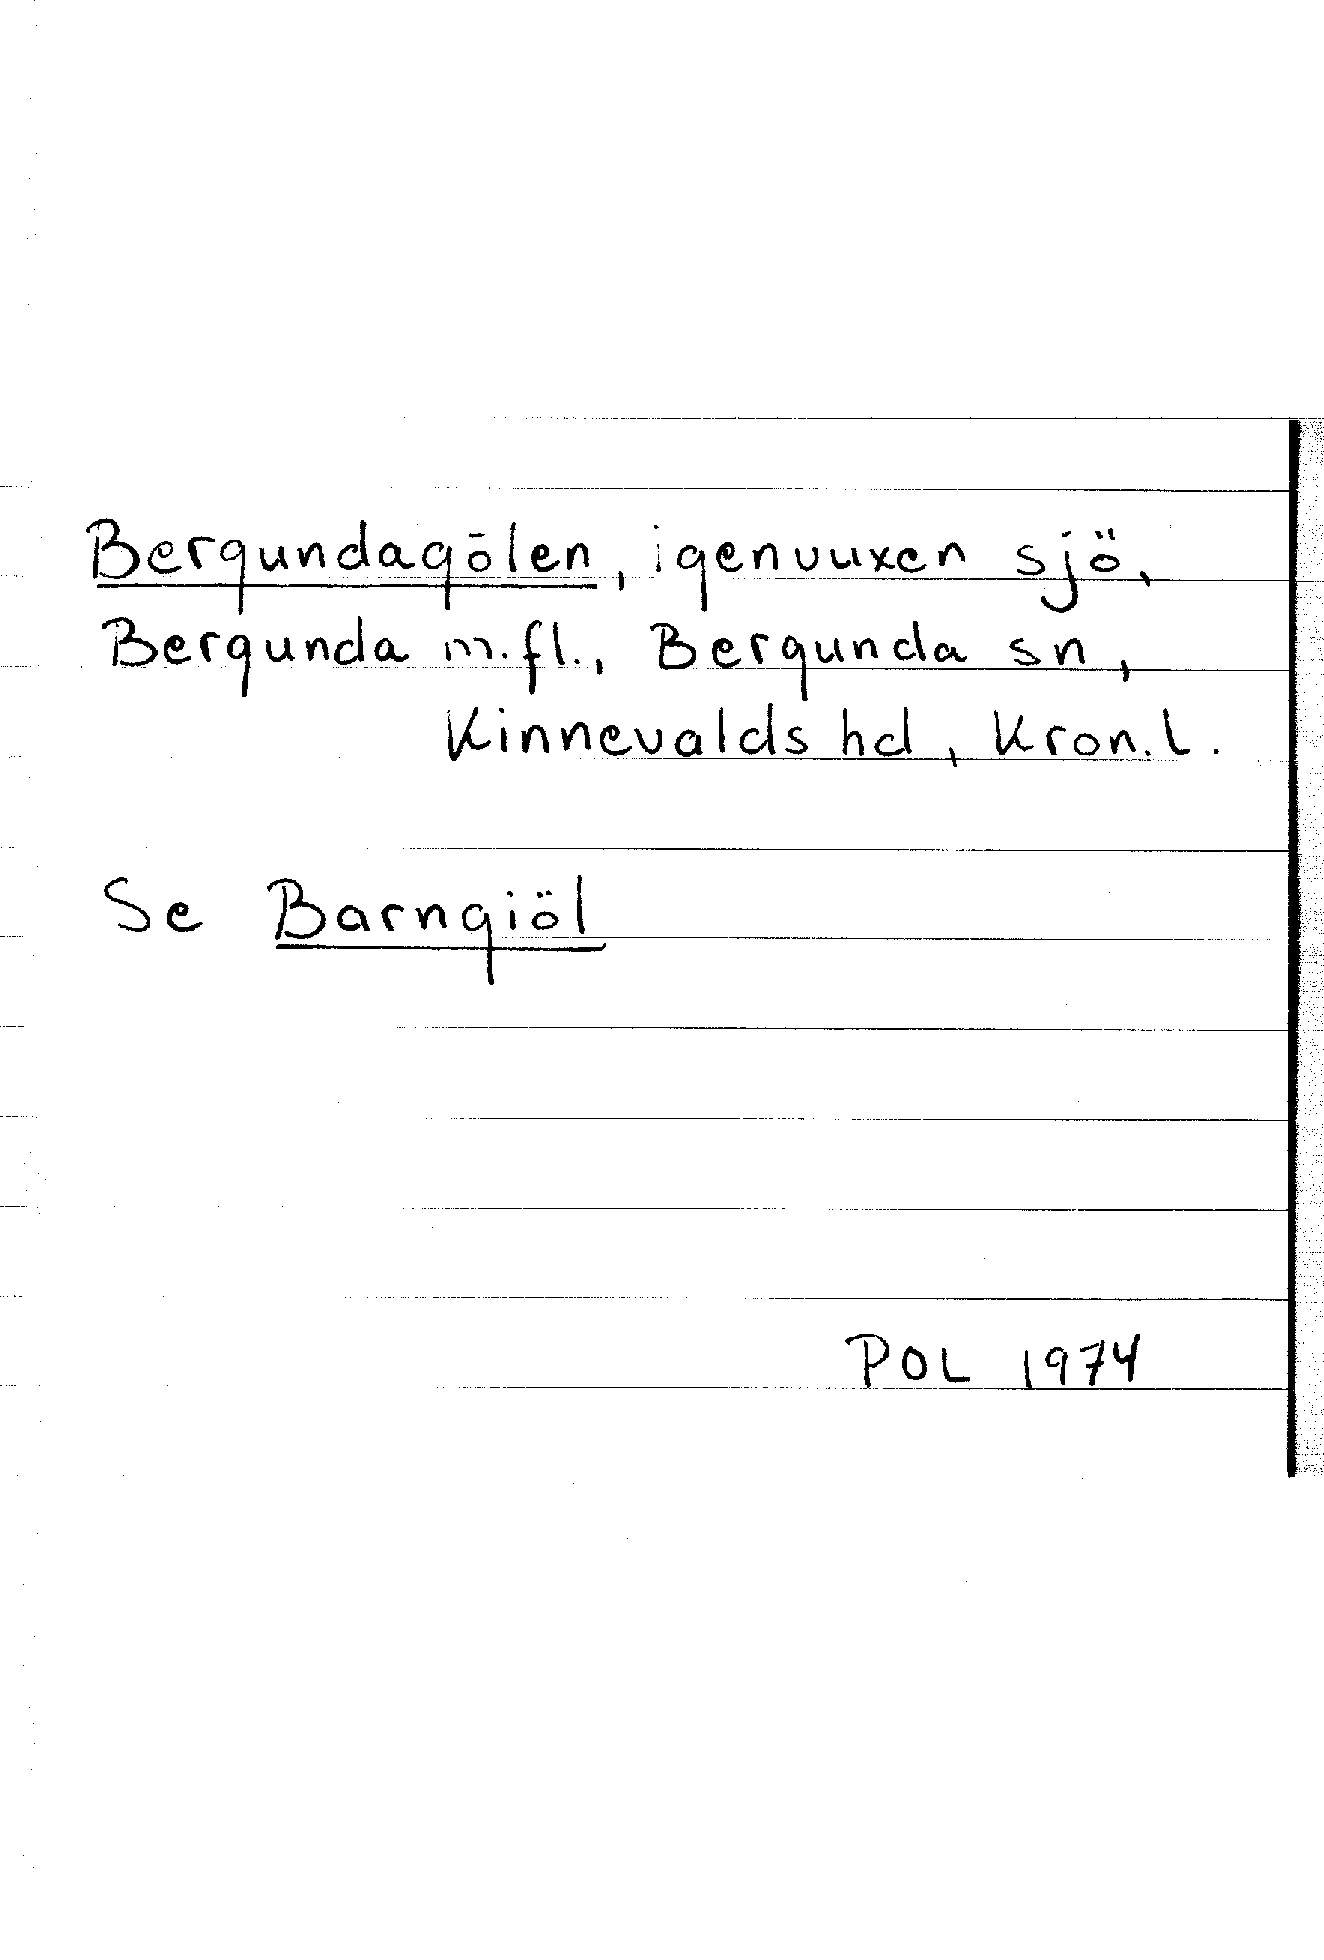 Bergundagölen, igenvuxen sjö,
Bergunda m.fl., Bergunda sn,
Kinnevalds hd, Kron.l.
Se Barngiöl
POL 1974